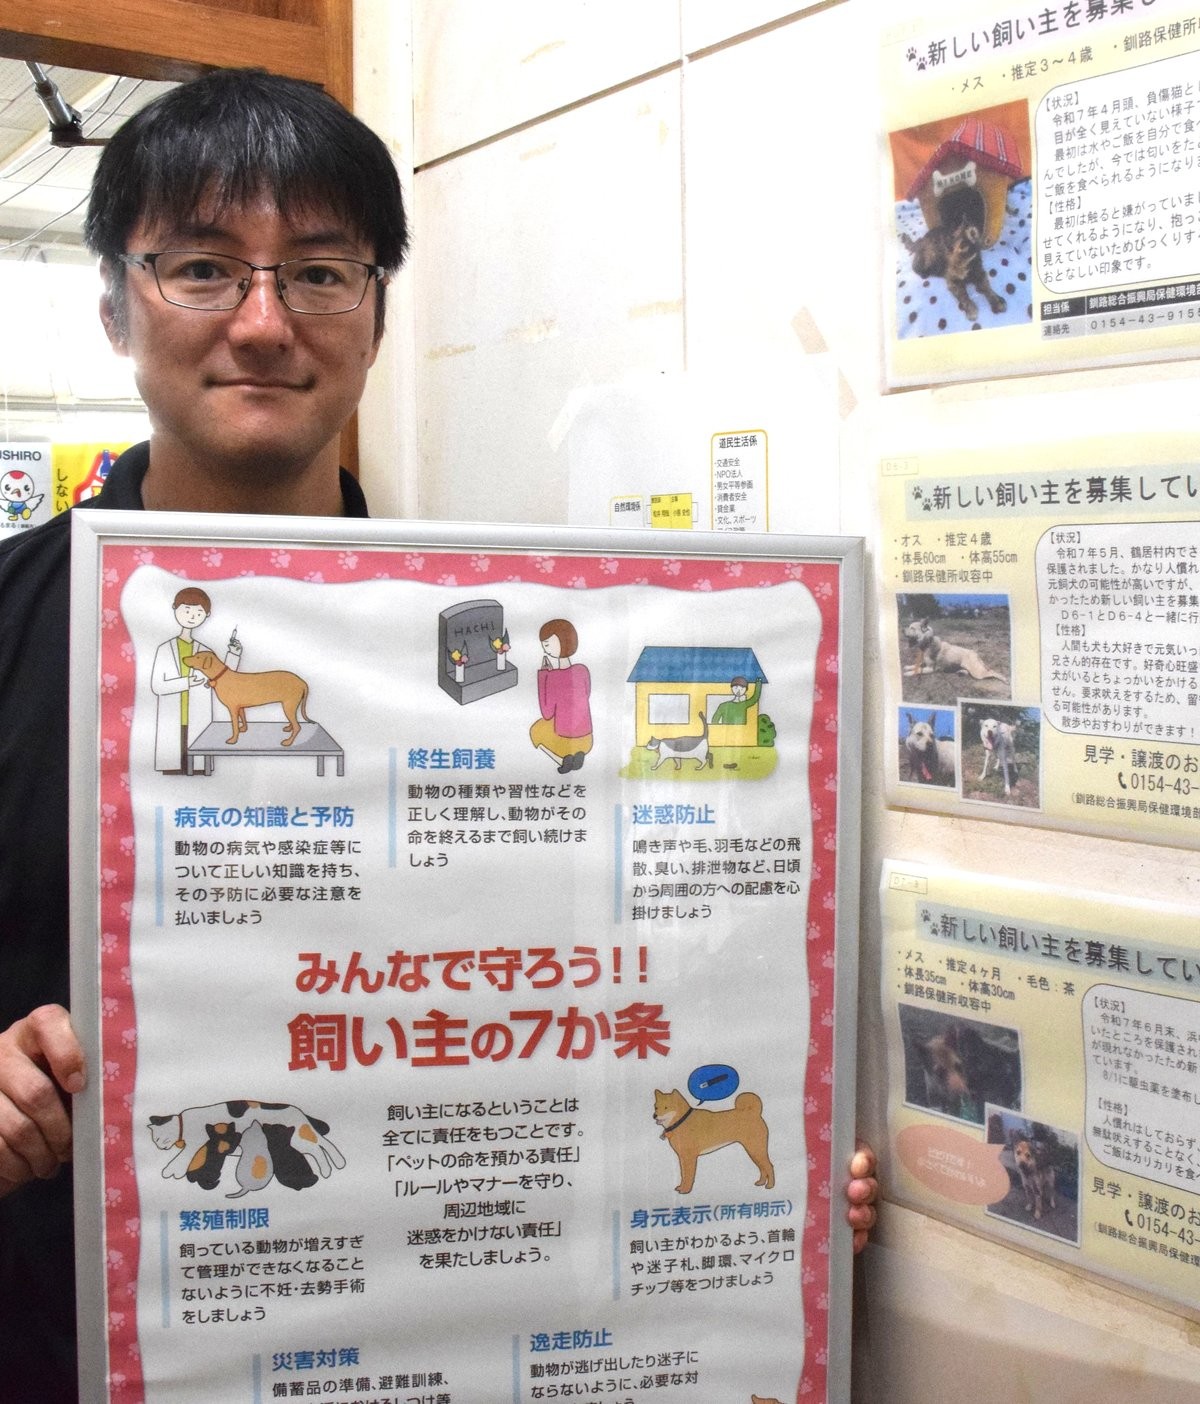 新しい飼い主を募集し
・メス ・推定３～４歳 ・釧路保健所
【状況】
令和７年４月頭、負傷猫と
目が全く見えていない様子
最初は水やご飯を自分で食べ
んでしたが、今では匂いをた
ご飯を食べられるようになり
【性格】
最初は触ると嫌がっていまし
せてくれるようになり、抱っ
見えていないためびっくりす
おとなしい印象です。
担当係 釧路総合振興局保健環境部
連絡先 ０１５４－４３－９１５５
道民生活係
・交通安全
・NPO法人
・男女平等参画
・消費者安全
・貸金業
・文化、スポーツ
自然環境係
SHIRO
しない
新しい飼い主を募集してい
・オス ・推定４歳
・体長60cm ・体高55cm
・釧路保健所収容中
【状況】
令和７年５月、鶴居村内でさ
保護されました。かなり人慣れ
元飼犬の可能性が高いですが、
かったため新しい飼い主を募集
Ｄ６－１とＤ６－４と一緒に行
【性格】
人間も犬も大好きで元気いっ
兄さん的存在です。好奇心旺盛
犬がいるとちょっかいをかける
せん。要求吠えをするため、留
る可能性があります。
散歩やおすわりができます！
見学・譲渡のお
0154-43-
（釧路総合振興局保健環
新しい飼い主を募集してい
・メス ・推定４ヶ月 ・毛色：茶
・体長35cm ・体高30cm
・釧路保健所収容中
【状況】
令和７年６月末、浜
いたところを保護され
が現れなかったため新
ています。
8/1に駆虫薬を塗布し
【性格】
人慣れはしておらず
無駄吠えすることなく
ご飯はカリカリを食べ
見学・譲渡のお
0154-43-
（釧路総合振興局保健環
HACHI
病気の知識と予防
動物の病気や感染症等に
ついて正しい知識を持ち、
その予防に必要な注意を
払いましょう
終生飼養
動物の種類や習性などを
正しく理解し、動物がその
命を終えるまで飼い続けま
しょう
迷惑防止
鳴き声や毛、羽毛などの飛
散、臭い、排泄物など、日頃
から周囲の方への配慮を心
掛けましょう
みんなで守ろう!!
飼い主の7か条
飼い主になるということは
全てに責任をもつことです。
「ペットの命を預かる責任」
「ルールやマナーを守り、
周辺地域に
迷惑をかけない責任」
を果たしましょう。
繁殖制限
飼っている動物が増えすぎ
て管理ができなくなること
ないように不妊・去勢手術
をしましょう
身元表示（所有明示）
飼い主がわかるよう、首輪
や迷子札、脚環、マイクロ
チップ等をつけましょう
災害対策
備蓄品の準備、避難訓練、
逸走防止
動物が逃げ出したり迷子に
ならないように、必要な対